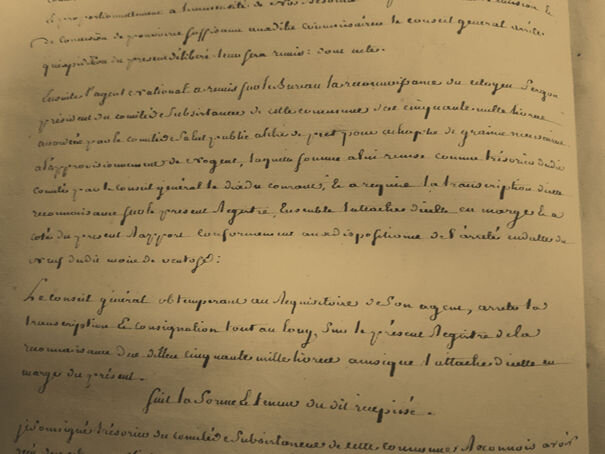 Et proportionnellement a l'intensité de nos besoins
de commission de pouvoir suffisant audits commissaires le conseil general arrête
qu'expédition du present déliberé leur sera remis: dont acte.
Ensuite l'agent national a remis sur le Bureau la reconnoissance du citoyen
président du comité de Subsistance de cette commune des cinquante mille livres
accordées par le comité de Salut public a titre de pret pour achapts de graine necessaire
a l'approvisionnement de Nogent, laquelle somme a lui remise comme trésorier dudit
comité par le conseil général le dix du courant, Et a requis la transcription d'icelle
reconnoissance sur le present Registre, Ensemble l'attache d'icelle en marge & a
coté du present Rapport conformement aux dispositions de l'arreté en datte du
neuf dudit mois de ventose:
Le conseil général obtemperant au Requisitoire de son agent, arrete la
transcription & consignation tout au long, sur le présent Registre de la
reconnoissance des dittes cinquante mille livres ainsi que l'attache d'icelle en
marge du présent.
Suit la forme & teneur du dit recepissé.
je soussigné trésorier du comité de Subsistance de cette commune, Reconnois avoir